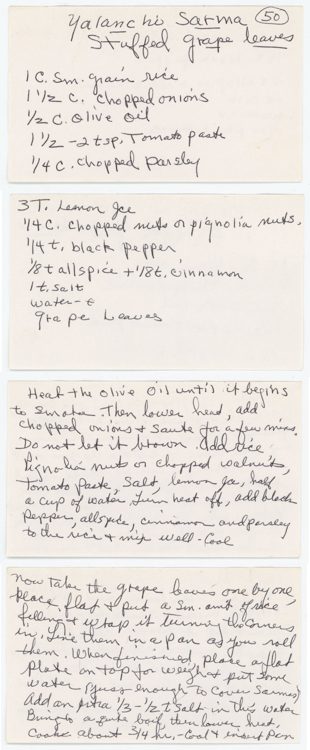 Yalanchi Sarma 50
Stuffed grape leaves
1 C. Sm. grain rice
1 1/2 C. chopped onions
1/2 C. Olive Oil
1 1/2 - 2 tsp. Tomato paste
1/4 C. chopped parsley
3 T. Lemon Jce
1/4 C. chopped nuts or pignolia nuts.
1/4 t. black pepper
1/8 t allspice + 1/8 t. cinnamon
1 t. salt
water - t
grape Leaves
Heat the olive oil until it begins
to smoke. Then lower heat, add
chopped onions & saute for a few mins.
Do not let it brown. Add rice
Pignolia nuts or chopped walnuts,
tomato paste, salt, lemon jce, half
a cup of water. Turn heat off, add black
pepper, allspice, cinnamon and parsley
to the rice & mix well - Cool
Now take the grape leaves one by one,
place flat & put a sm. amt of rice
filling & wrap it turning the corners
in. Line them in a pan as you roll
them. When finished, place a flat
plate on top for weight & put some
water (just enough to cover Sarmas)
Add an extra 1/3 - 1/2 t Salt in the water
Bring to a boil, then lower heat,
Cook about 3/4 hr. - Cool & insert pan